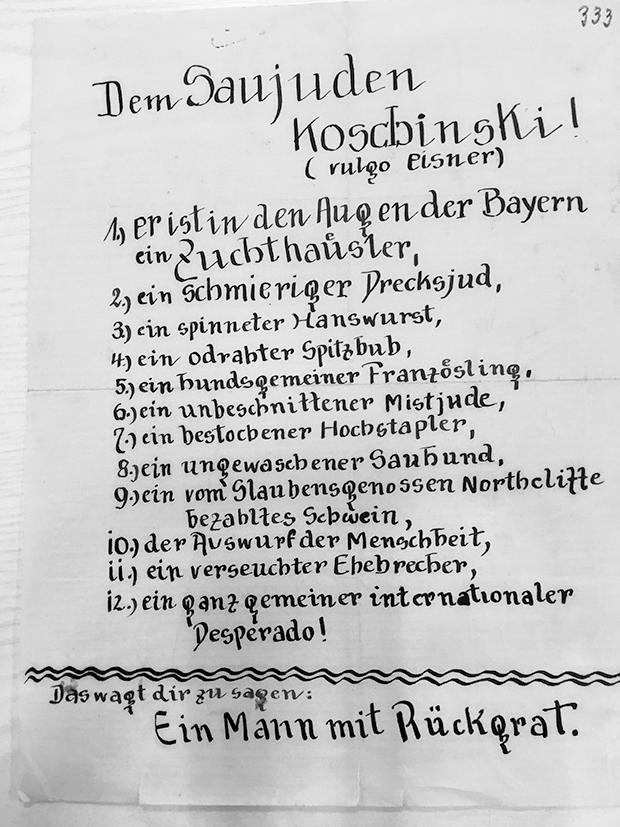 333
Dem Saujuden
Koschinski!
(vulgo Eisner)
1.) er ist in den Augen der Bayern
ein Zuchthäusler,
2.) ein schmieriger Drecksjud,
3.) ein spinneter Hanswurst,
4.) ein odrahter Spitzbub,
5.) ein hundsgemeiner Französling,
6.) ein unbeschnittener Mistjude,
7.) ein bestochener Hochstapler,
8.) ein ungewaschener Sauhund,
9.) ein vom Glaubensgenossen Northcliffe
bezahltes Schwein,
10.) der Auswurf der Menschheit,
11.) ein verseuchter Ehebrecher,
12.) ein ganz gemeiner internationaler
Desperado!
Das wagt dir zu sagen:
Ein Mann mit Rückgrat.